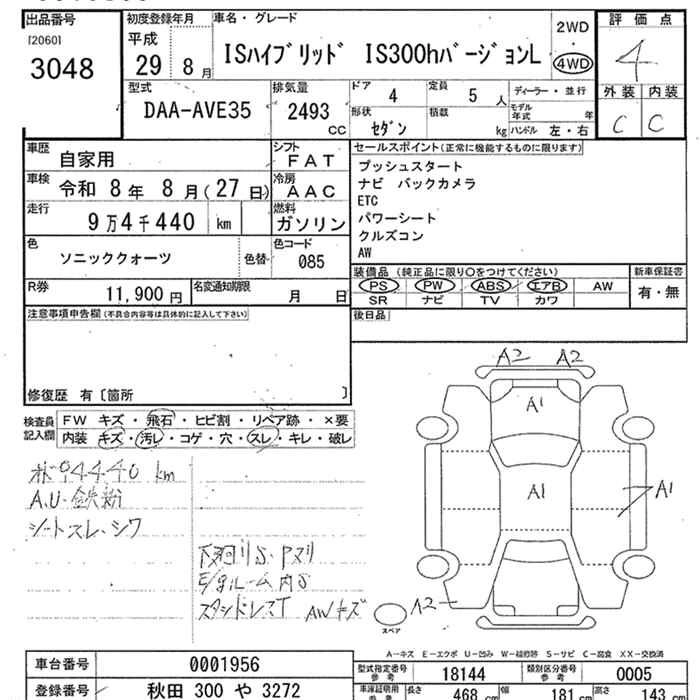 出品番号
[2060]
3048
初度登録年月
平成
29 8月
車名・グレード
ISハイブリッド IS300hバージョンL
2WD
4WD
評価点
4
外装 内装
C C
型式
DAA-AVE35
排気量
2493
CC
ドア 4
定員 5 人
ディーラー・並行
形状 セダン
積載 kg
モデル年式 年
ハンドル 左・右
車歴 自家用
シフト FAT
車検 令和 8年 8月(27日)
冷房 AAC
走行 9万4千440 km
燃料 ガソリン
色 ソニッククォーツ
色替
色コード 085
R券 11,900円
名変通知期限 月 日
セールスポイント(正常に機能するものに限ります)
プッシュスタート
ナビ バックカメラ
ETC
パワーシート
クルズコン
AW
装備品(純正品に限り○をつけてください)
PS PW ABS エアB AW
SR ナビ TV カワ
新車保証書
有・無
後日品
注意事項申告欄(不具合内容等は具体的に記入して下さい)
修復歴 有〔箇所 〕
検査員記入欄
FW キズ・飛石・ヒビ割・リペア跡・×要
内装 キズ・汚レ・コゲ・穴・スレ・キレ・破レ
94440 km
A.U・鉄粉
シートスレ・シワ
下廻りS・Pスリ
E/gルーム内S
スタンドレスT AWキズ
A2 A2
A1
A1
A1
A2
スペア
A-キズ E-エクボ U-凹み W-補修跡 S-サビ C-腐食 XX-交換済
車台番号 0001956
型式指定番号 18144
類別区分番号 0005
登録番号 秋田 300 や 3272
車庫証明用参考 長さ 468 cm 幅 181 cm 高さ 143 cm